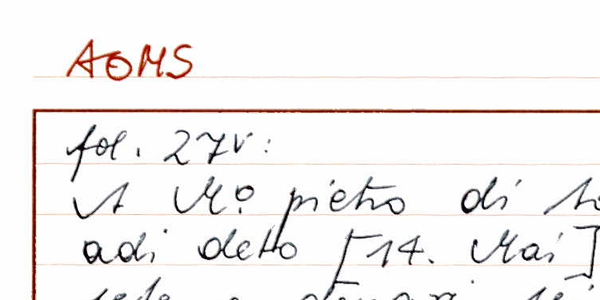 AOMS
fol. 27v:
A Mº pietro di
adi detto [14. Mai]